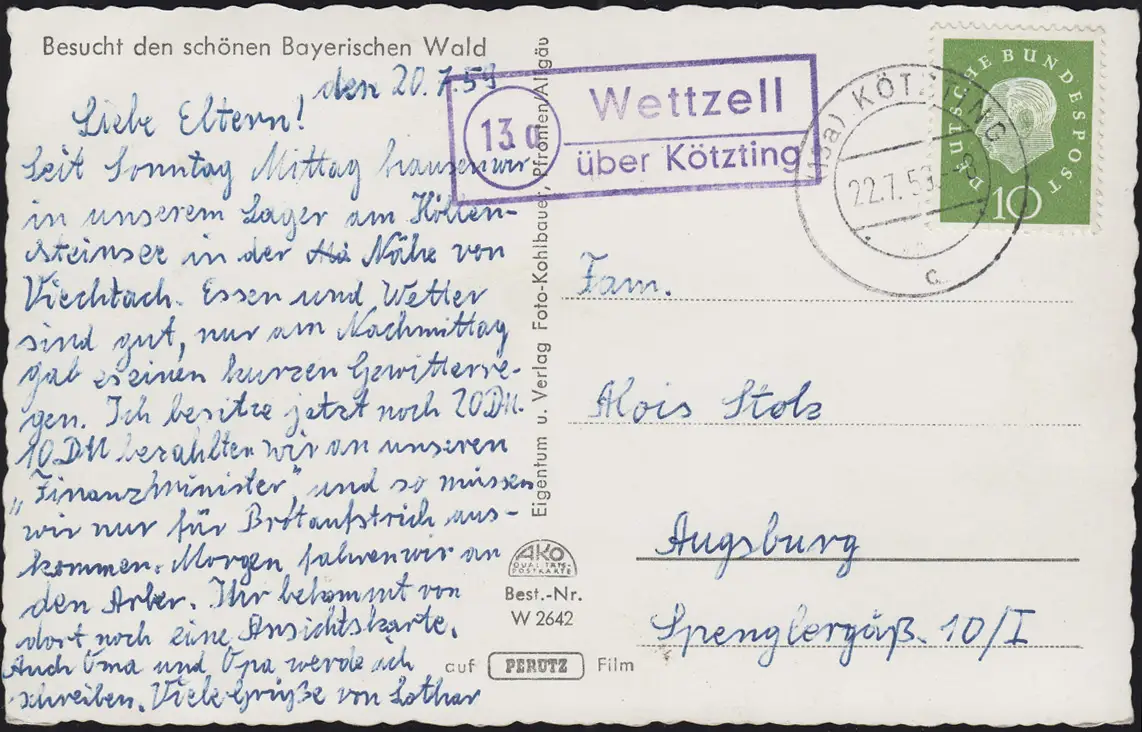 Besucht den schönen Bayerischen Wald
den 20.7.59
Liebe Eltern!
Seit Sonntag Mittag hausen wir
in unserem Lager am Höllen-
steinsee in der Nähe von
Viechtach. Essen und Wetter
sind gut, nur am Nachmittag
gab es einen kurzen Gewitterre-
gen. Ich besitze jetzt noch 20 DM.
10 DM bezahlten wir an unseren
„Finanzminister", und so müssen
wir nur für Brotaufstrich aus-
kommen. Morgen fahren wir an
den Arber. Ihr bekommt von
dort noch eine Ansichtskarte.
Auch Oma und Opa werde ich
schreiben. Viele Grüße von Lothar
Eigentum u. Verlag Foto-Kohlbauer, Pfronten/Allgäu
AKO
QUALITÄTS-
POSTKARTE
Best.-Nr.
W 2642
auf PERUTZ Film
13a
Wettzell
über Kötzting
(13a) KÖTZTING
22.7.59.-8
c
DEUTSCHE BUNDESPOST
10
Fam.
Alois Stolz
Augsburg
Spenglergäß. 10/I